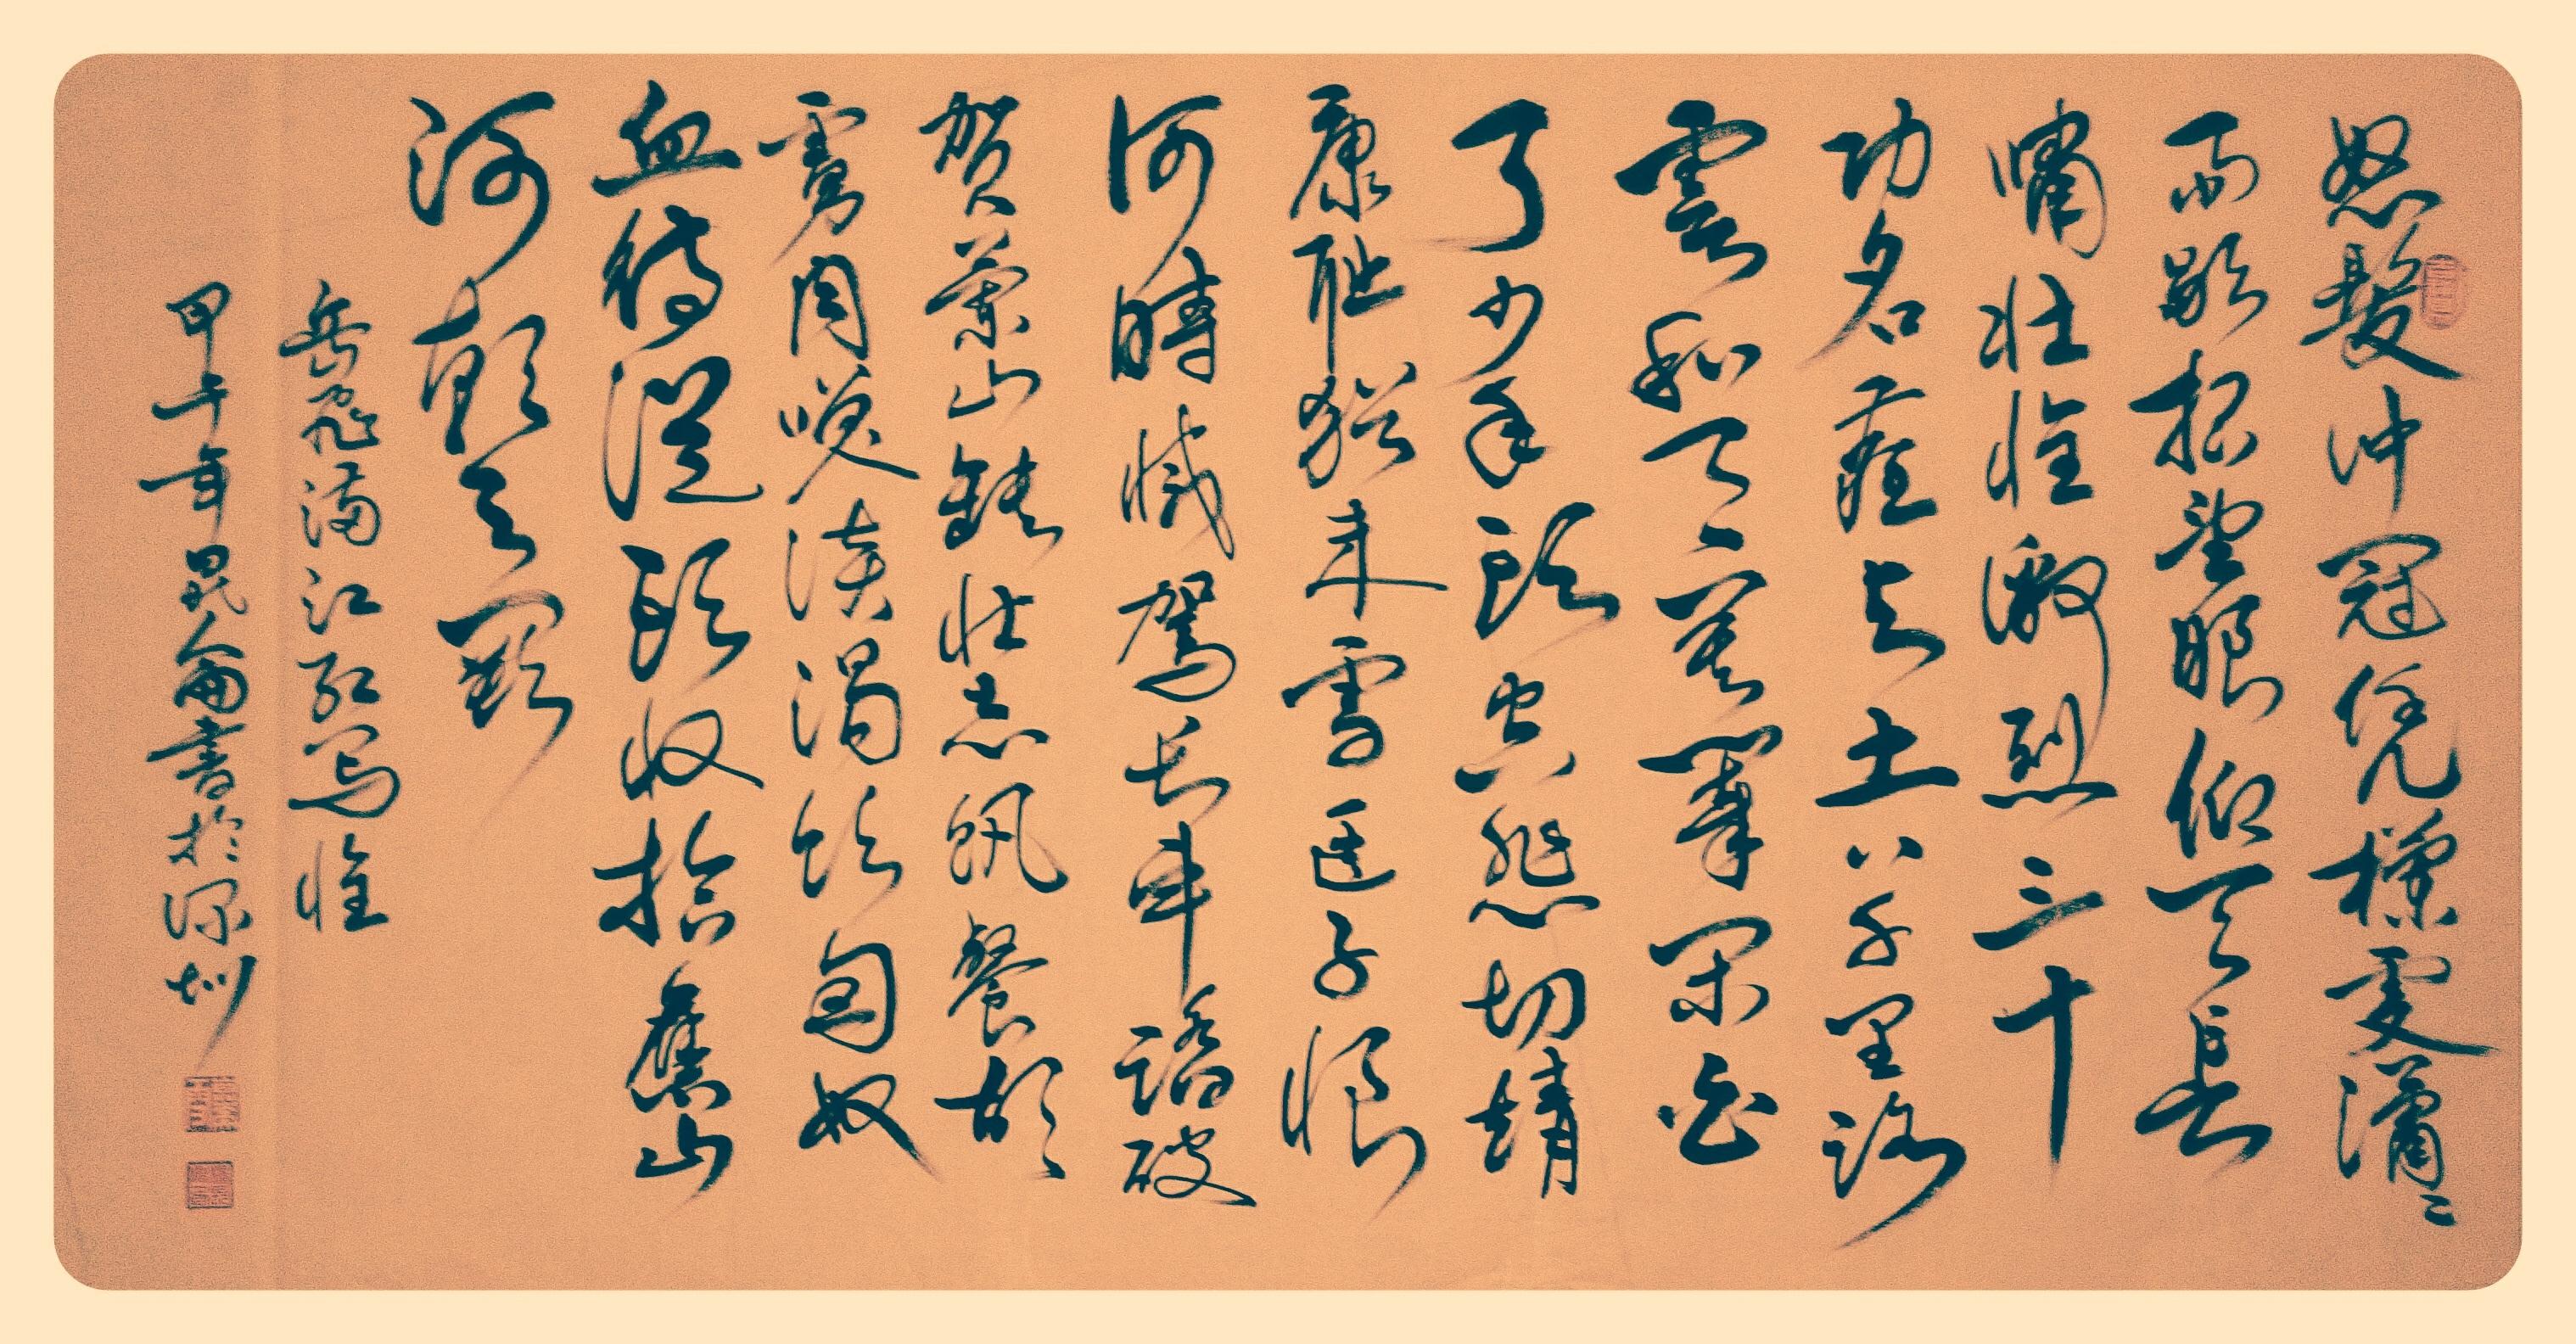 怒髮沖冠凭欄處瀟々
雨歇抬望眼仰天長
嘯壮懷激烈三十
功名塵與土八千里路
雲和月莫等閑白
了少年頭空悲切靖
康恥猶未雪臣子恨
何時滅駕長車踏破
賀蘭山缺壮志飢餐胡
虜肉笑談渴飲匈奴
血待從頭收拾舊山
河朝天闕
岳飛滿江紅写懷
甲午年昆侖書於深圳